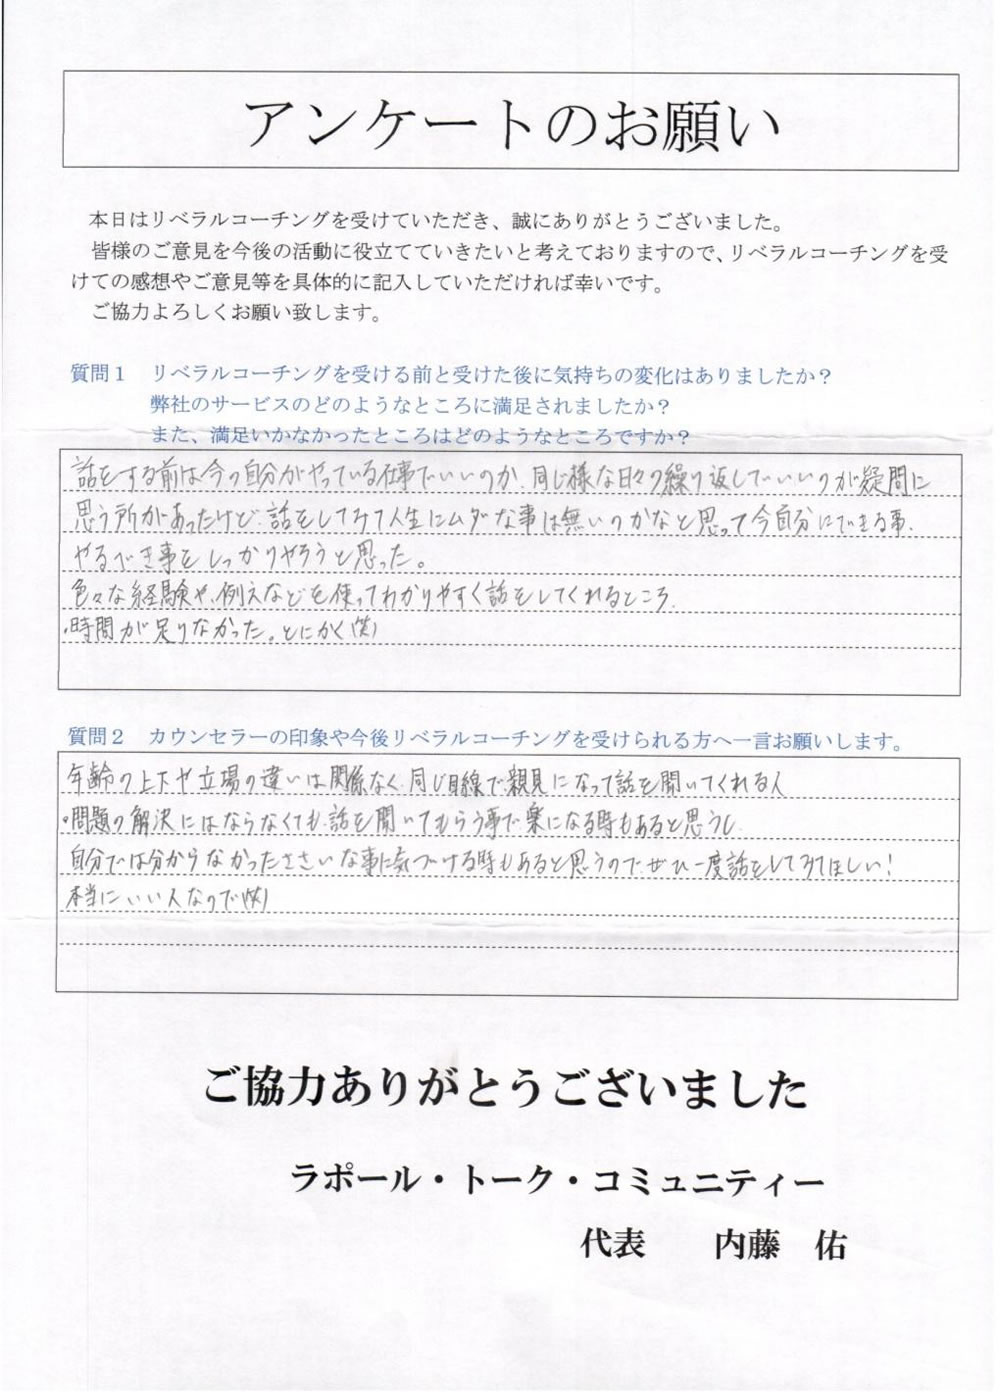 アンケートのお願い
本日はリベラルコーチングを受けていただき、誠にありがとうございました。
皆様のご意見を今後の活動に役立てていきたいと考えておりますので、リベラルコーチングを受
けての感想やご意見等を具体的に記入していただければ幸いです。
ご協力よろしくお願い致します。
質問１　リベラルコーチングを受ける前と受けた後に気持ちの変化はありましたか？
弊社のサービスのどのようなところに満足されましたか？
また、満足いかなかったところはどのようなところですか？
話をする前は今の自分がやっている仕事でいいのか、同じ様な日々の繰り返しでいいのか疑問に
思う所があったけど、話をしてみて人生にムダな事は無いのかなと思って今自分にできる事、
やるべき事をしっかりやろうと思った。
色々な経験や、例えなどを使ってわかりやすく話をしてくれるところ。
・時間が足りなかった。とにかく(笑)
質問２　カウンセラーの印象や今後リベラルコーチングを受けられる方へ一言お願いします。
年齢の上下や立場の違いは関係なく、同じ目線で、親見になって話を聞いてくれる人
・問題の解決にはならなくても、話を聞いてもらう事で楽になる時もあると思うし、
自分では分からなかったささいな事に気づける時もあると思うので、ぜひ一度話をしてみてほしい！
本当にいい人なので(笑)
ご協力ありがとうございました
ラポール・トーク・コミュニティー
代表　　内藤　佑